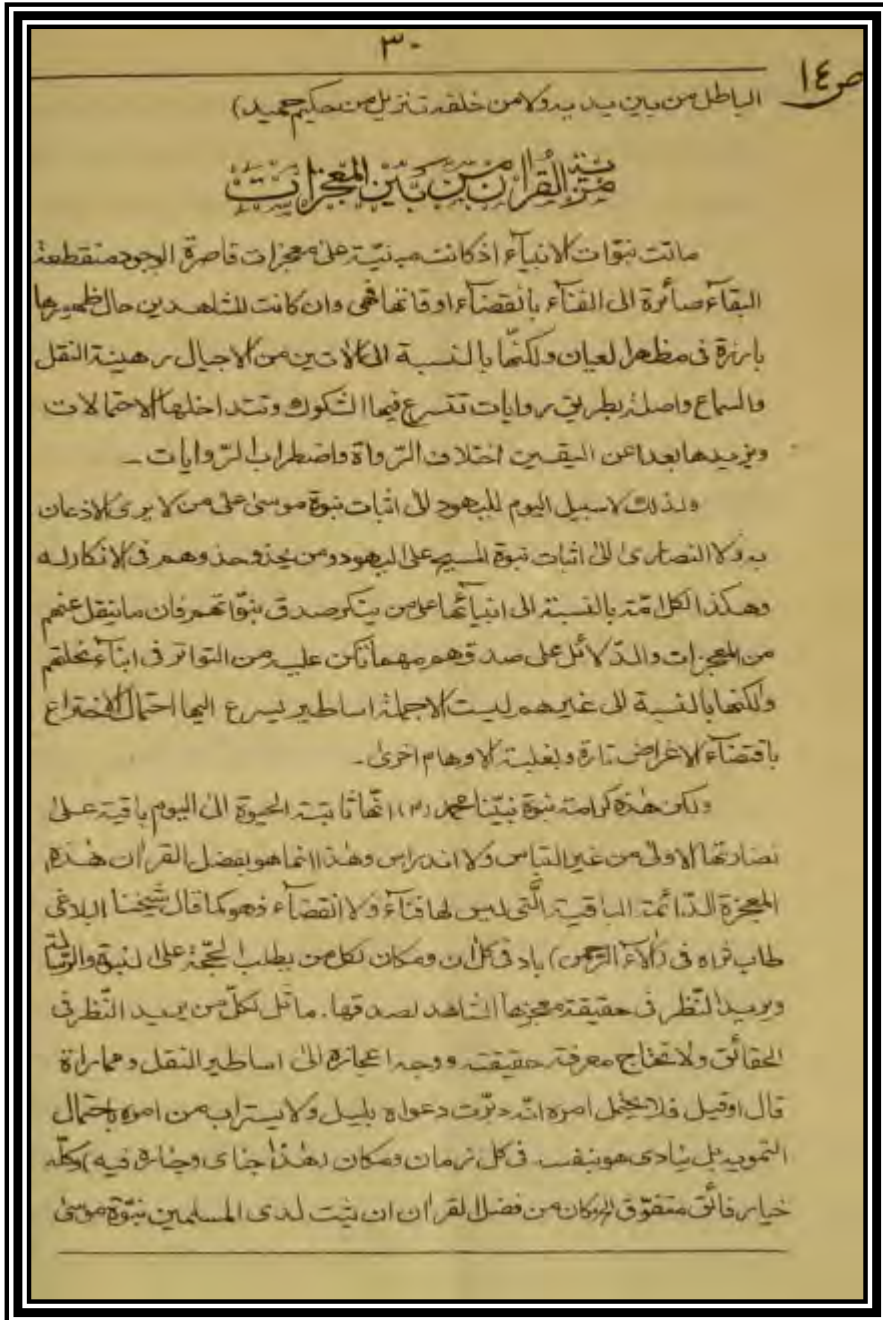 ٣٠
ص ١٤
الباطل من بين يديه ولا من خلفه تنزيل من حكيم حميد)
مزية القران من بين المعجزات
ماتت نبوّات الانبيآء اذ كانت مبنيّة على معجزات قاصرة الوجود منقطعة
البقآء صآئرة الى الفنآء بانقضآء اوقاتها فهى وان كانت للشاهدين حال ظهورها
بارزة فى مظهر العيان ولكنّها بالنسبة الى الاتين من الاجيال رهينة النقل
والسماع واصلة بطريق روايات تتسرع فيها الشكوك وتتداخلها الاحتمالات
ويزيدها بعدا عن اليقين اختلاف الرّواة واضطراب الرّوايات ـ
ولذلك لا سبيل اليوم لليهود الى اثبات نبوة موسىٰ على من لا يرى الاذعان
به ولا النصارىٰ الى اثبات نبوة المسيح على اليهود ومن يحذو حذوهم فى الانكار له
وهكذا لكل امّة بالنسبة الى انبيآئها على من ينكر صدق نبوّاتهم فان ما ينقل عنهم
من المعجزات والدّلائل على صدقهم مهما تكن عليه من التواتر فى ابنآء نحلتهم
ولكنها بالنسبة الى غيرهم ليست الا جملة اساطير يسرع اليها احتمال الاختراع
باقتضآء الاغراض تارة وبغلبة الاوهام اخرىٰ ـ
ولكن هٰذه كرامة نبوة نبيّنا محمد (٣) انّها ثابتة الحيوة الى اليوم باقية علىٰ
نضارتها الاولىٰ من غير التباس ولا اندراس وهٰذا انما هو بفضل القراٰن هٰذه
المعجزة الدّائمة الباقية الّتى ليس لها فنآء ولا انقضآء فهو كما قال شيخنا البلاغى
طاب ثراه فى (اٰلاء الرّحمن) باد فى كل اٰن ومكان لكل من يطلب الحجّة على النبوة والرسالة
ويريد النّظر فى حقيقة معجزها الشاهد لصدقها. ماثل لكلّ من يريد النّظر فى
الحقآئق ولا تحتاج معرفة حقيقته ووجه اعجازه الىٰ اساطير النقل ومماراة
قال او قيل فلا يحتمل امره انّه دبّرت دعواه بليل ولا يستراب من امره باحتمال
التمويه بل ينادى هو بنفسه فى كل زمان ومكان (هٰذا جناى وخياره فيه) وكلّه
خيار فائق متفوّق كان من فضل القراٰن ان يثبت لدى المسلمين نبوّة موسىٰ